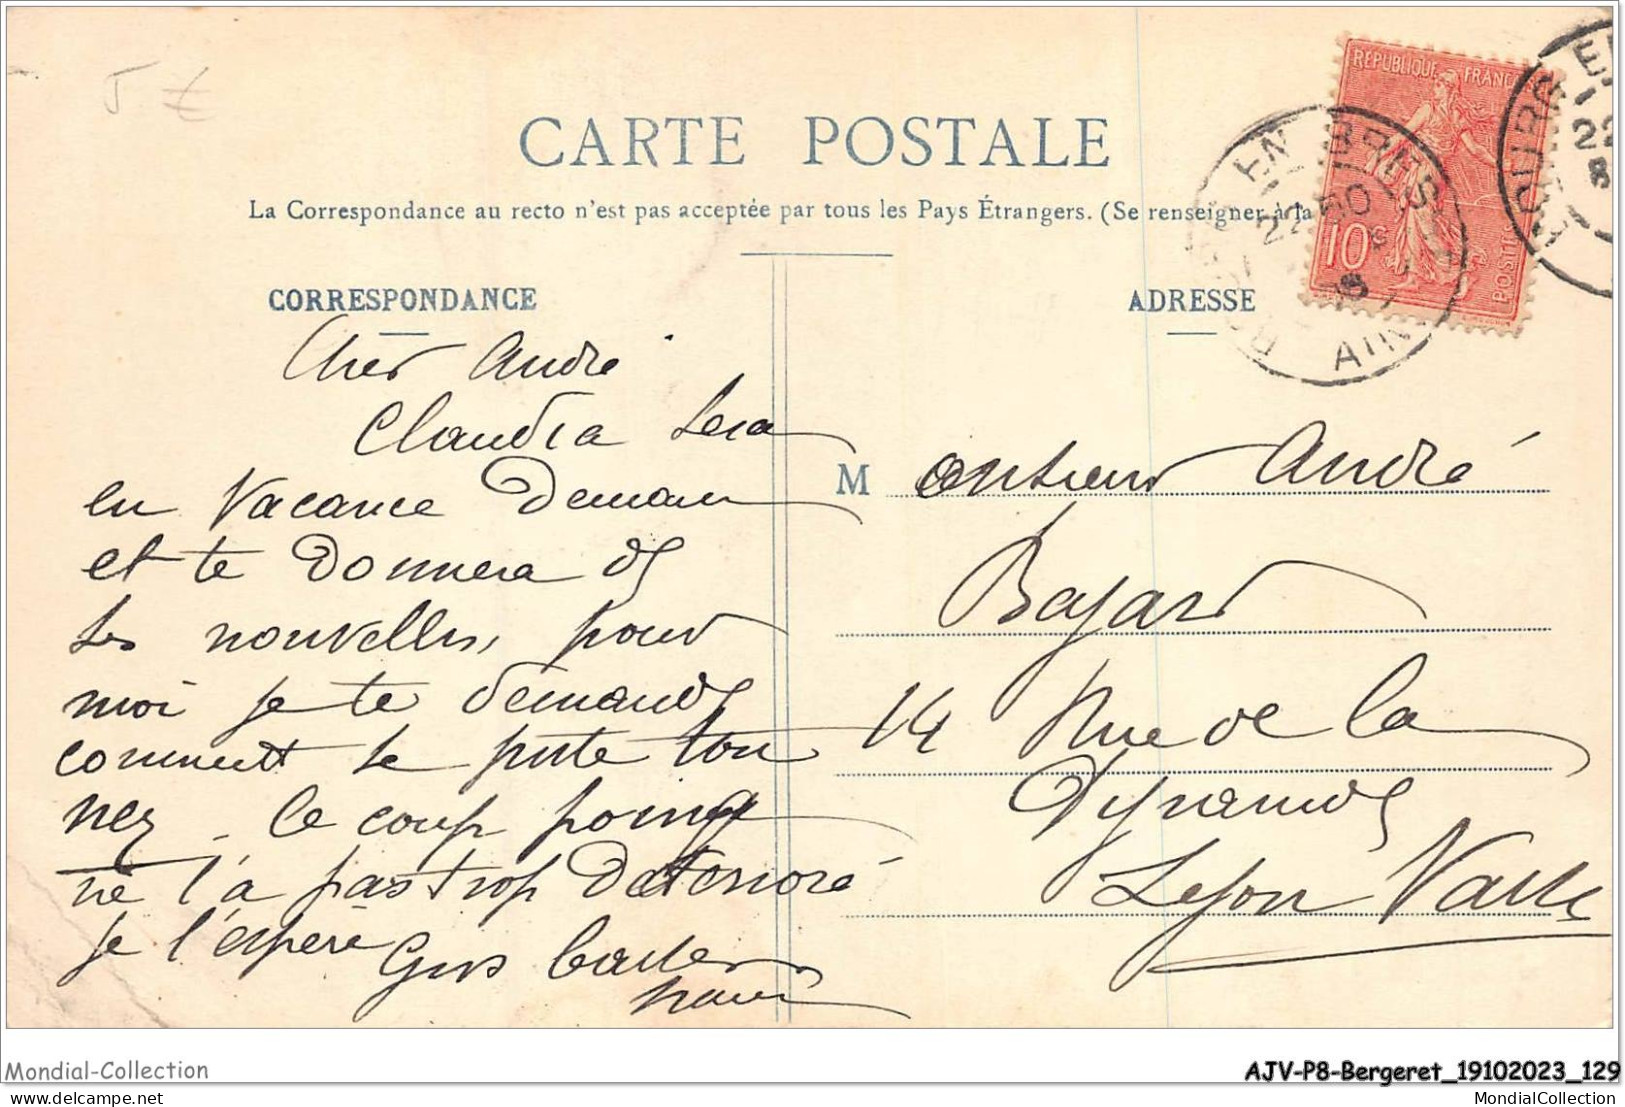 5 €
CARTE POSTALE
La Correspondance au recto n'est pas acceptée par tous les Pays Étrangers. (Se renseigner à la
RÉPUBLIQUE FRANÇ
10c
POSTES
EN BRES
AIN
BOURG
CORRESPONDANCE
ADRESSE
Cher André
Claudia sera
en Vacance Demain
et te Donnera de
ses nouvelles, pour
moi je te demande
comment se porte ton
nez. le coup poing
ne l'a pas trop Deterioré
je l'espère Gros baiser
M onsieur André
Bayard
14 Rue de la
Pyramide
Lyon Vaise
Mondial-Collection
AJV-P8-Bergeret_19102023_129
www.delcampe.net
MondialCollection